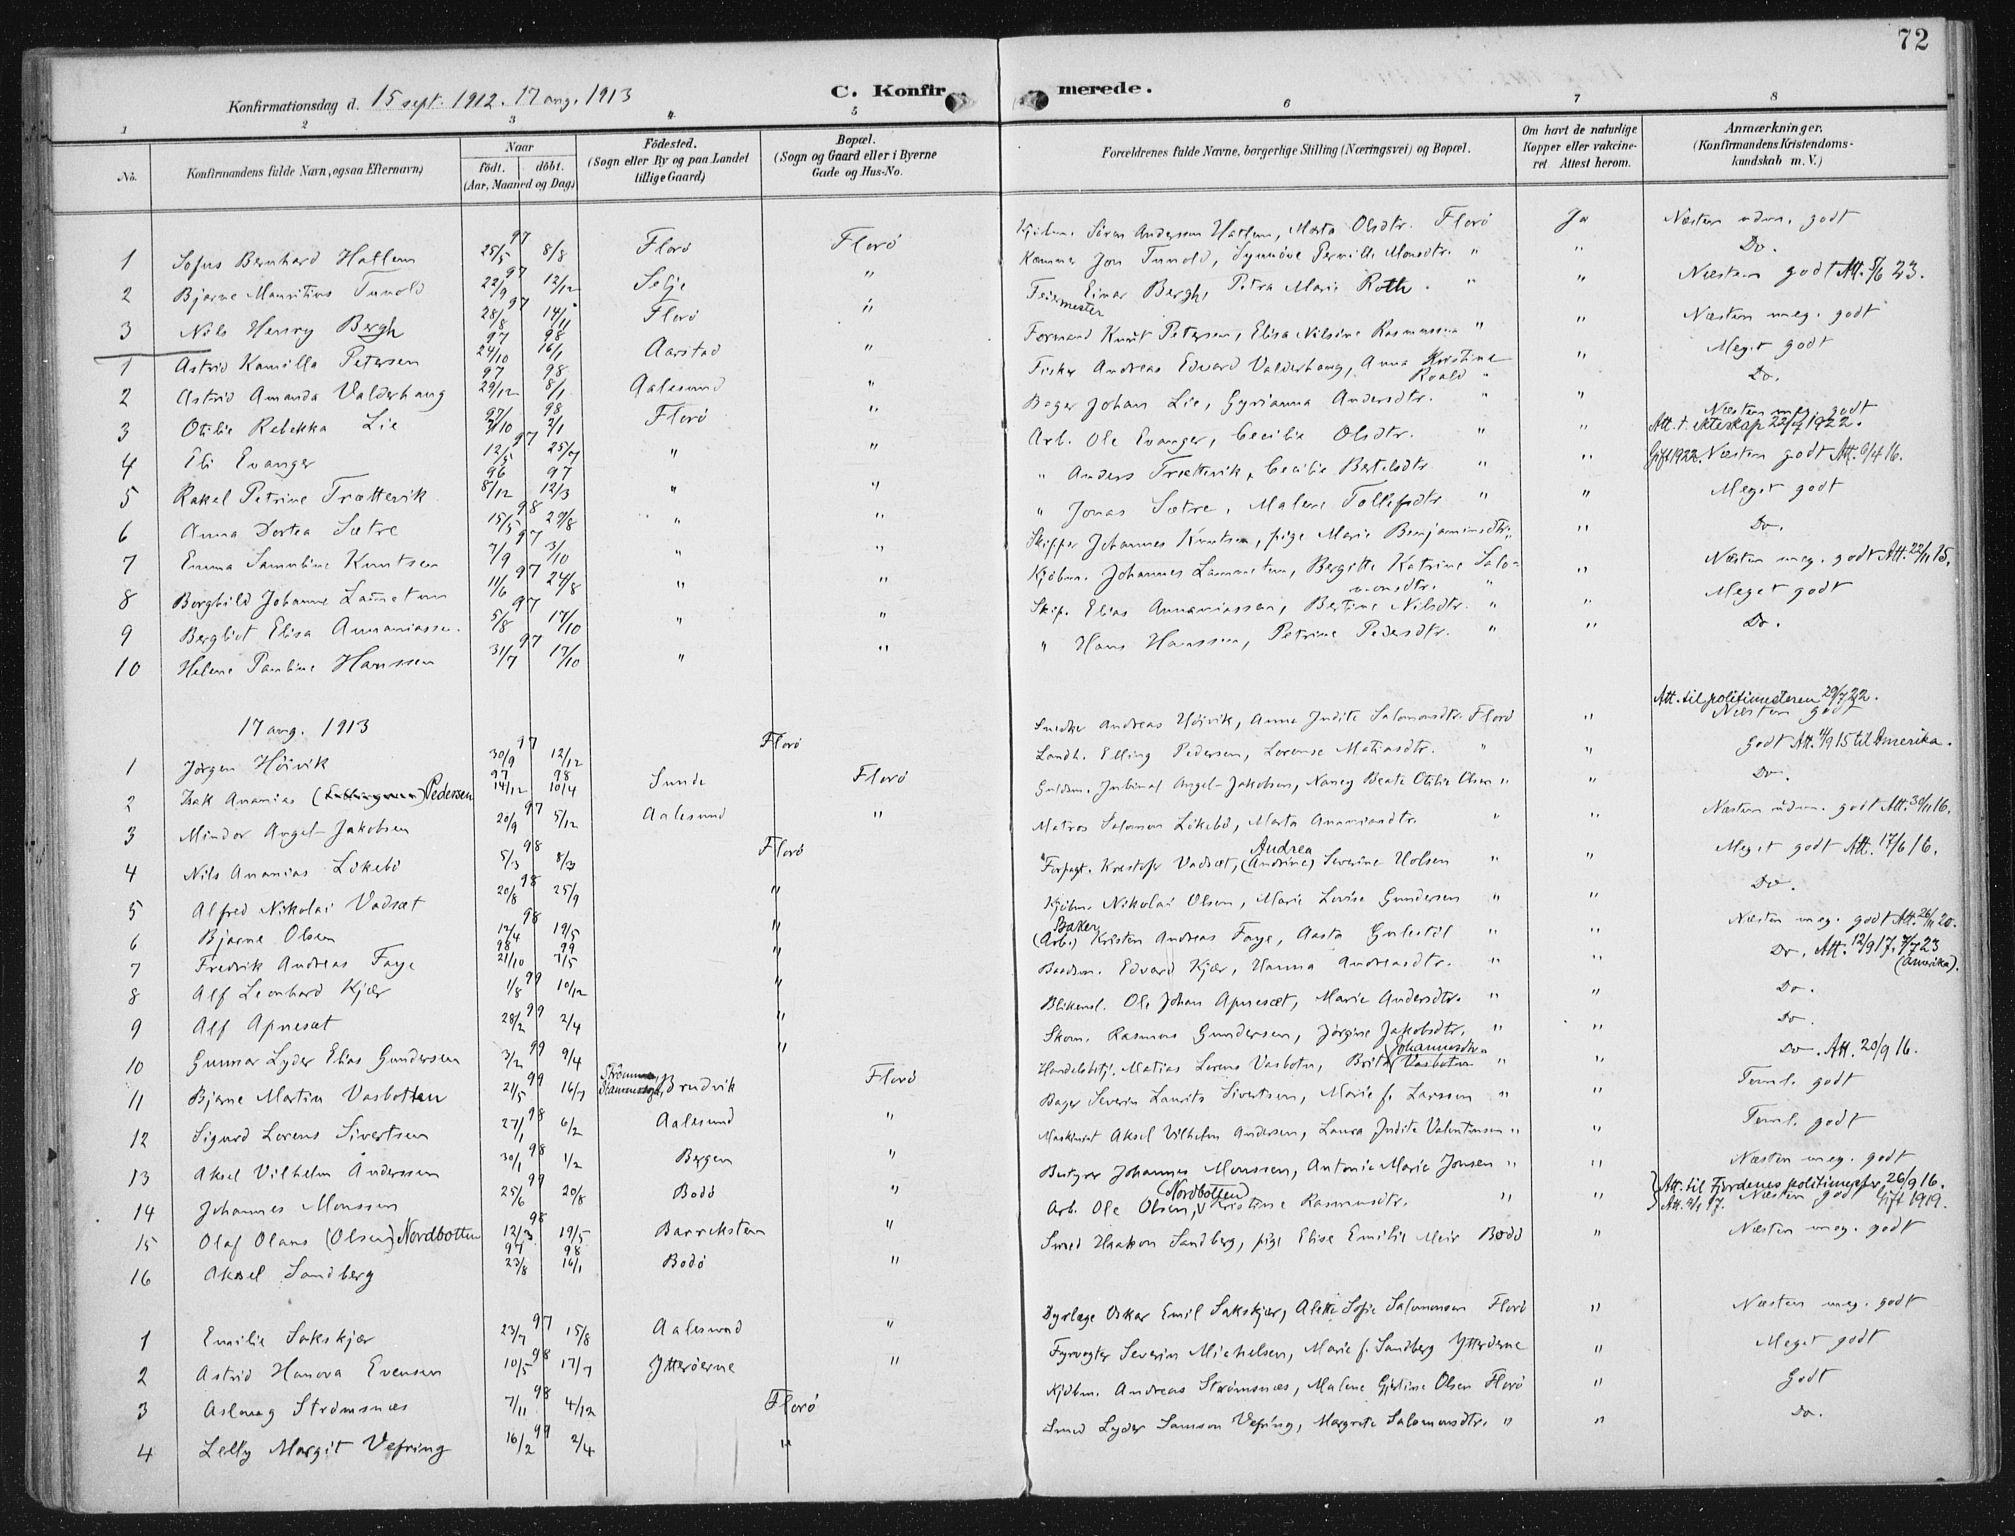 72
Konfirmationsdag d. 15 sept. 1912. 17 aug. 1913
C. Konfir merede.
1 2 3 4 5 6 7 8
No. Konfirmandens fulde Navn, ogsaa Efternavn) Naar Födt. döbt. (Aar, Maaned og Dag) Födested. (Sogn eller By og paa Landet tillige Gaard) Bopæl. (Sogn og Gaard eller i Byerne Gade og Hus-No. Forældrenes fulde Navne, borgerlige Stilling (Næringsvei) og Bopæl. Om havt de naturlige Kopper eller vakcineret. Attest herom. Anmærkninger. (Konfirmandens Kristendomskundskab m. V.)
1 Sofus Bernhard Hatlem 97 25/5 8/8 Florö Florö Kjöbm. Sören Andersen Hatlem, Marta Olsdtr. Florö Ja Næsten udm. godt
2 Bjarne Mauritius Tunold 97 22/9 12/12 Selje " Kæmner Jon Tunold, Synnöve Pernille Monsdtr. " " Do.
3 Nils Henry Bergh 97 28/8 14/11 Florö " Feiermester Einar Bergh, Petra Marie Roth. " " Næsten godt Att. 5/6 23.
1 Astrid Kamilla Petersen 97 24/10 98 16/1 Aarstad " Formand Knut Petersen, Elisa Nilsine Rasmussen " " Næsten meg. godt
2 Astrid Amanda Valderhaug 97 29/12 98 8/1 Aalesund " Fisker Andreas Edvard Valderhaug, Anna Kristine Roald " " Meget godt
3 Otilie Rebekka Lie 97 98 2/1 Florö " Bager Johan Lie, Gyrianna Andersdtr. " " Do.
4 Eli Evanger 97 12/5 25/7 " " Arb. Ole Evanger, Cecilie Olsdtr. " " Næsten meg. godt Att. t. ekteskap 22/7 1922.
5 Rakel Petrine Trættevik 96 8/12 97 12/3 " " " Anders Trættevik, Cecilie Bertelsdtr " " Gift 1922. Næsten godt Att. 6/4 16.
6 Anna Dortea Sætre 98 15/5 29/8 " " " Jonas Sætre, Malene Tollefsdtr " " Meget godt
7 Emma Samuline Knutsen 97 7/9 3/10 " " Skipper Johannes Knutsen, pige Marie Benjaminsdtr. " " Do.
8 Borghild Johanne Lammetun 97 11/6 24/8 " " Kjöbm. Johannes Lammetun, Bergitte Katrine Salomonsdtr. " " Næsten meg. godt Att. 22/11 15.
9 Bergliot Elisa Annaniassen 97 5/8 17/10 " " Skip. Elias Annaniassen, Bertine Nilsdtr. " " Meget godt
10 Helene Pauline Hanssen 97 31/7 17/10 " " " Hans Hanssen, Petrine Pedersdtr. " " Do.
17 aug. 1913
1 Jörgen Höivik 97 30/9 12/12 Florö Snedker Andreas Höivik, Anna Judite Salomonsdtr. Florö " Att. til politimesteren 29/7 22. Næsten godt
2 Isak Ananias Pedersen 97 14/12 98 10/4 Sunde Florö Landh. Elling Pedersen, Lorense Matiasdtr. " " Godt Att. 4/9 15 til Amerika.
3 Mindor Angel-Jakobsen 97 20/9 5/12 Aalesund " Guldsm. Angel-Jakobsen, Nancy Beate Otilie Olsen " " Do.
4 Nils Ananias Lökebö 98 5/3 8/3 Florö Matros Salomon Lökebö, Marta Ananiasdtr. " " Næsten udm. godt Att. 30/11 16.
5 Alfred Nikolai Vadsæt 98 20/8 25/9 " Forpagt. Kristofer Vadsæt, Andrea (Andrine) Severine Holsen " " Meget godt Att. 17/6 16.
6 Bjarne Olsen 98 12/4 19/5 " Kjöbm. Nikolai Olsen, Marie Lovise Gundersen " " Do.
7 Fredrik Andreas Faye 98 21/10 99 7/5 " Baker (Arb.) Kristen Andreas Faye, Aasta Gulestöl " " Næsten meg. godt Att. 26/11 20.
8 Alf Leonhard Kjær 99 1/8 10/12 " Baadsm. Edvard Kjær, Hanna Andreasdtr. " " Do. Att. 12/9 17. 7/7 23 (Amerika).
9 Alf Apnesæt 99 28/2 2/4 " Blikensl. Ole Johan Apnesæt, Marie Andersdtr. " " Do.
10 Gunnar Lyder Elias Gundersen 99 3/2 9/4 " Skom. Rasmus Gundersen, Jörgine Jakobsdtr. " " Do.
11 Bjarne Martin Vasbotten 99 21/5 16/7 Brudvik Florö Handelsbetj. Matias Lorens Vasbotn, Brita Johannesdtr. Vasbotn " " Do. Att. 20/9 16.
12 Sigurd Lorens Sivertsen 98 27/1 6/2 Aalesund " Bager Severin Laurits Sivertsen, Marie f. Larssen " " Teml. godt
13 Aksel Vilhelm Anderssen 98 30/1 1/2 Bergen " Maskinist Aksel Vilhelm Andersen, Laura Judite Valentinsen " " Teml. godt
14 Johannes Monssen 99 25/6 20/8 Bodö " Bestyrer Johannes Monssen, Antonie Marie Jonsen " " Næsten meg. godt
15 Olaf Olaus (Olsen) Nordbotten 98 12/3 19/5 Barreksten " Arb. Ole Olsen (Nordbotten), Kristine Rasmusdtr. " " Att. til Fjordenes politimester 26/9 16. Att. 2/1 17. Næsten godt Gift 1919.
16 Aksel Sandberg 97 23/8 98 16/1 Bodö " Smed Haakon Sandberg, pige Elise Emilie Meir Bodö " Næsten meg. godt
1 Emilie Sakskjær 97 23/7 15/8 Aalesund " Dyrlæge Oskar Emil Sakskjær, Alette Sofie Salomonsen Florö " Næsten meg. godt
2 Astrid Hanova Evensen 98 10/5 17/7 Ytteröerne " Fyrvogter Severin Michelsen, Marie f. Sandberg Ytteröerne " Meget godt
3 Aslaug Strömsnæs 98 7/11 4/12 Florö Kjöbm. Andreas Strömsnæs, Malene Gjertine Olsen Florö " Godt
4 Lelly Margit Vefring 99 16/2 2/4 " Smed Lyder Samson Vefring, Margrete Salomonsdtr. " " Do.